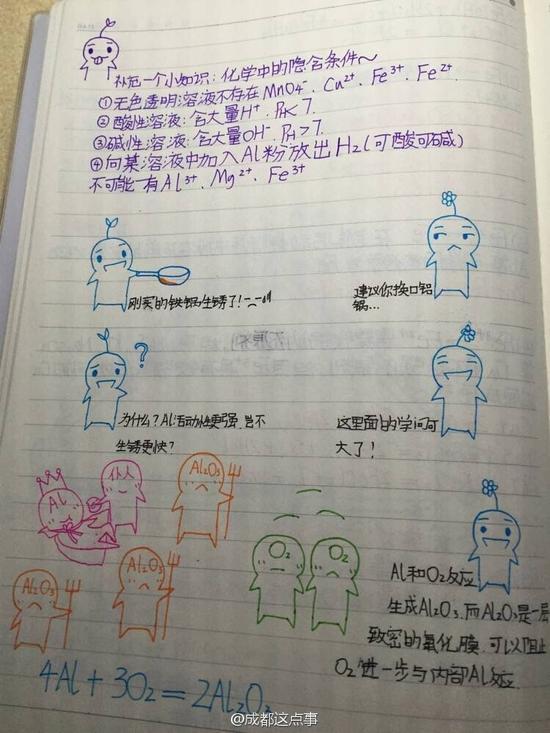 补充一个小知识：化学中的隐含条件～
①无色透明溶液不存在MnO4⁻、Cu²⁺、Fe³⁺、Fe²⁺
②酸性溶液：含大量H⁺、PH<7.
③碱性溶液：含大量OH⁻、PH>7.
④向某溶液中加入Al粉放出H₂(可酸可碱)
不可能有Al³⁺、Mg²⁺、Fe³⁺
刚买的铁锅生锈了！
建议你换口铝
锅…
?
为什么？Al活动性更强，岂不
生锈更快？
这里面的学问可
大了！
Al
仆人
Al₂O₃
Al₂O₃
Al₂O₃
O₂
O₂
Al和O₂反应
生成Al₂O₃.而Al₂O₃是一层
致密的氧化膜.可以阻止
O₂进一步与内部Al反应.
4Al+3O₂=2Al₂O₃
@成都这点事